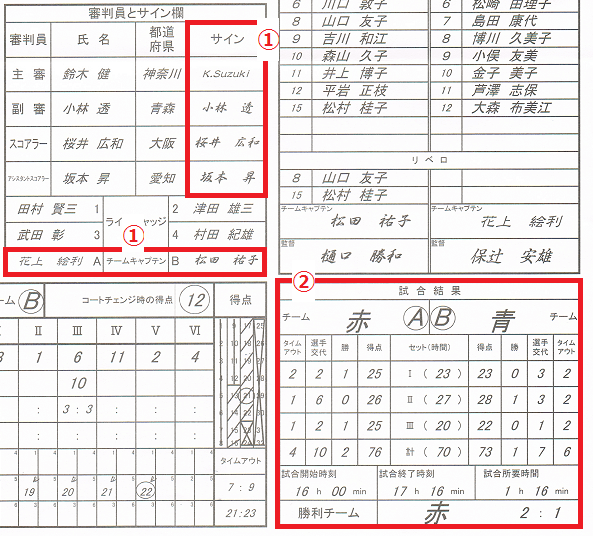 審判員とサイン欄
審判員 氏名 都道府県 サイン ①
主審 鈴木 健 神奈川 K.Suzuki
副審 小林 透 青森 小林 透
スコアラー 桜井 広和 大阪 桜井 広和
アシスタントスコアラー 坂本 昇 愛知 坂本 昇
田村 賢三 1 ラインジャッジ 2 津田 雄三
武田 彰 3 4 村田 紀雄
①
花上 絵利 A チームキャプテン B 松田 祐子
6 川口 敦子 6 松崎 由理子
8 山口 友子 7 島田 康代
9 吉川 和江 8 博川 久美子
10 森山 久子 9 小俣 友美
11 井上 博子 10 金子 美子
12 平岩 正枝 11 芦澤 志保
15 松村 桂子 12 大森 布美江
リベロ
8 山口 友子
15 松村 桂子
チームキャプテン チームキャプテン
松田 祐子 花上 絵利
監督 監督
樋口 勝和 保辻 安雄
ーム B コートチェンジ時の得点 12 得点
II III IV V VI
3 1 6 11 2 4
10
: 3 : 3 : : :
: : : : :
19 20 21 22
タイムアウト
7 : 9
21:23
②
試合結果
チーム 赤 A B 青 チーム
タイムアウト 選手交代 勝 得点 セット(時間) 得点 勝 選手交代 タイムアウト
2 2 1 25 I ( 23 ) 23 0 3 2
1 6 0 26 II ( 27 ) 28 1 3 2
1 2 1 25 III ( 20 ) 22 0 1 2
4 10 2 76 計 ( 70 ) 73 1 7 6
試合開始時刻 試合終了時刻 試合所要時間
16 h 00 min 17 h 16 min 1 h 16 min
勝利チーム 赤 2 : 1